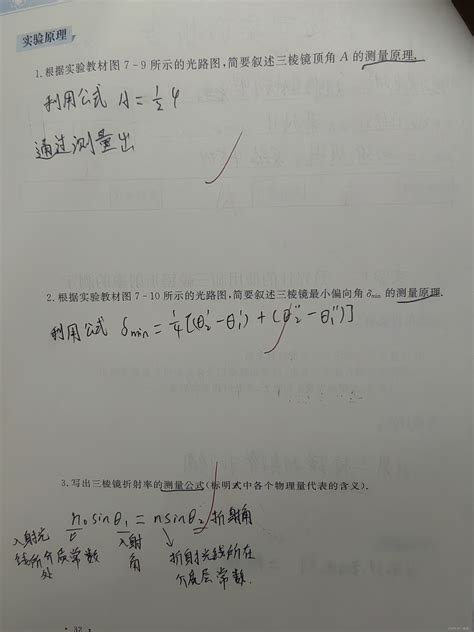 实验原理
1.根据实验教材图7-9所示的光路图,简要叙述三棱镜顶角A的测量原理.
利用公式 A = 1/2 φ
通过测量出
2.根据实验教材图7-10所示的光路图,简要叙述三棱镜最小偏向角δmin的测量原理.
利用公式 δmin = 1/4[(θ2′-θ1′)+(θ2″-θ1″)]
3.写出三棱镜折射率的测量公式(标明式中各个物理量代表的含义).
n0 sinθ1 = n sinθ2 折射角
入射光
线所介质常数
处
入射
角
折射光线所在
介质层常数.
· 32 ·